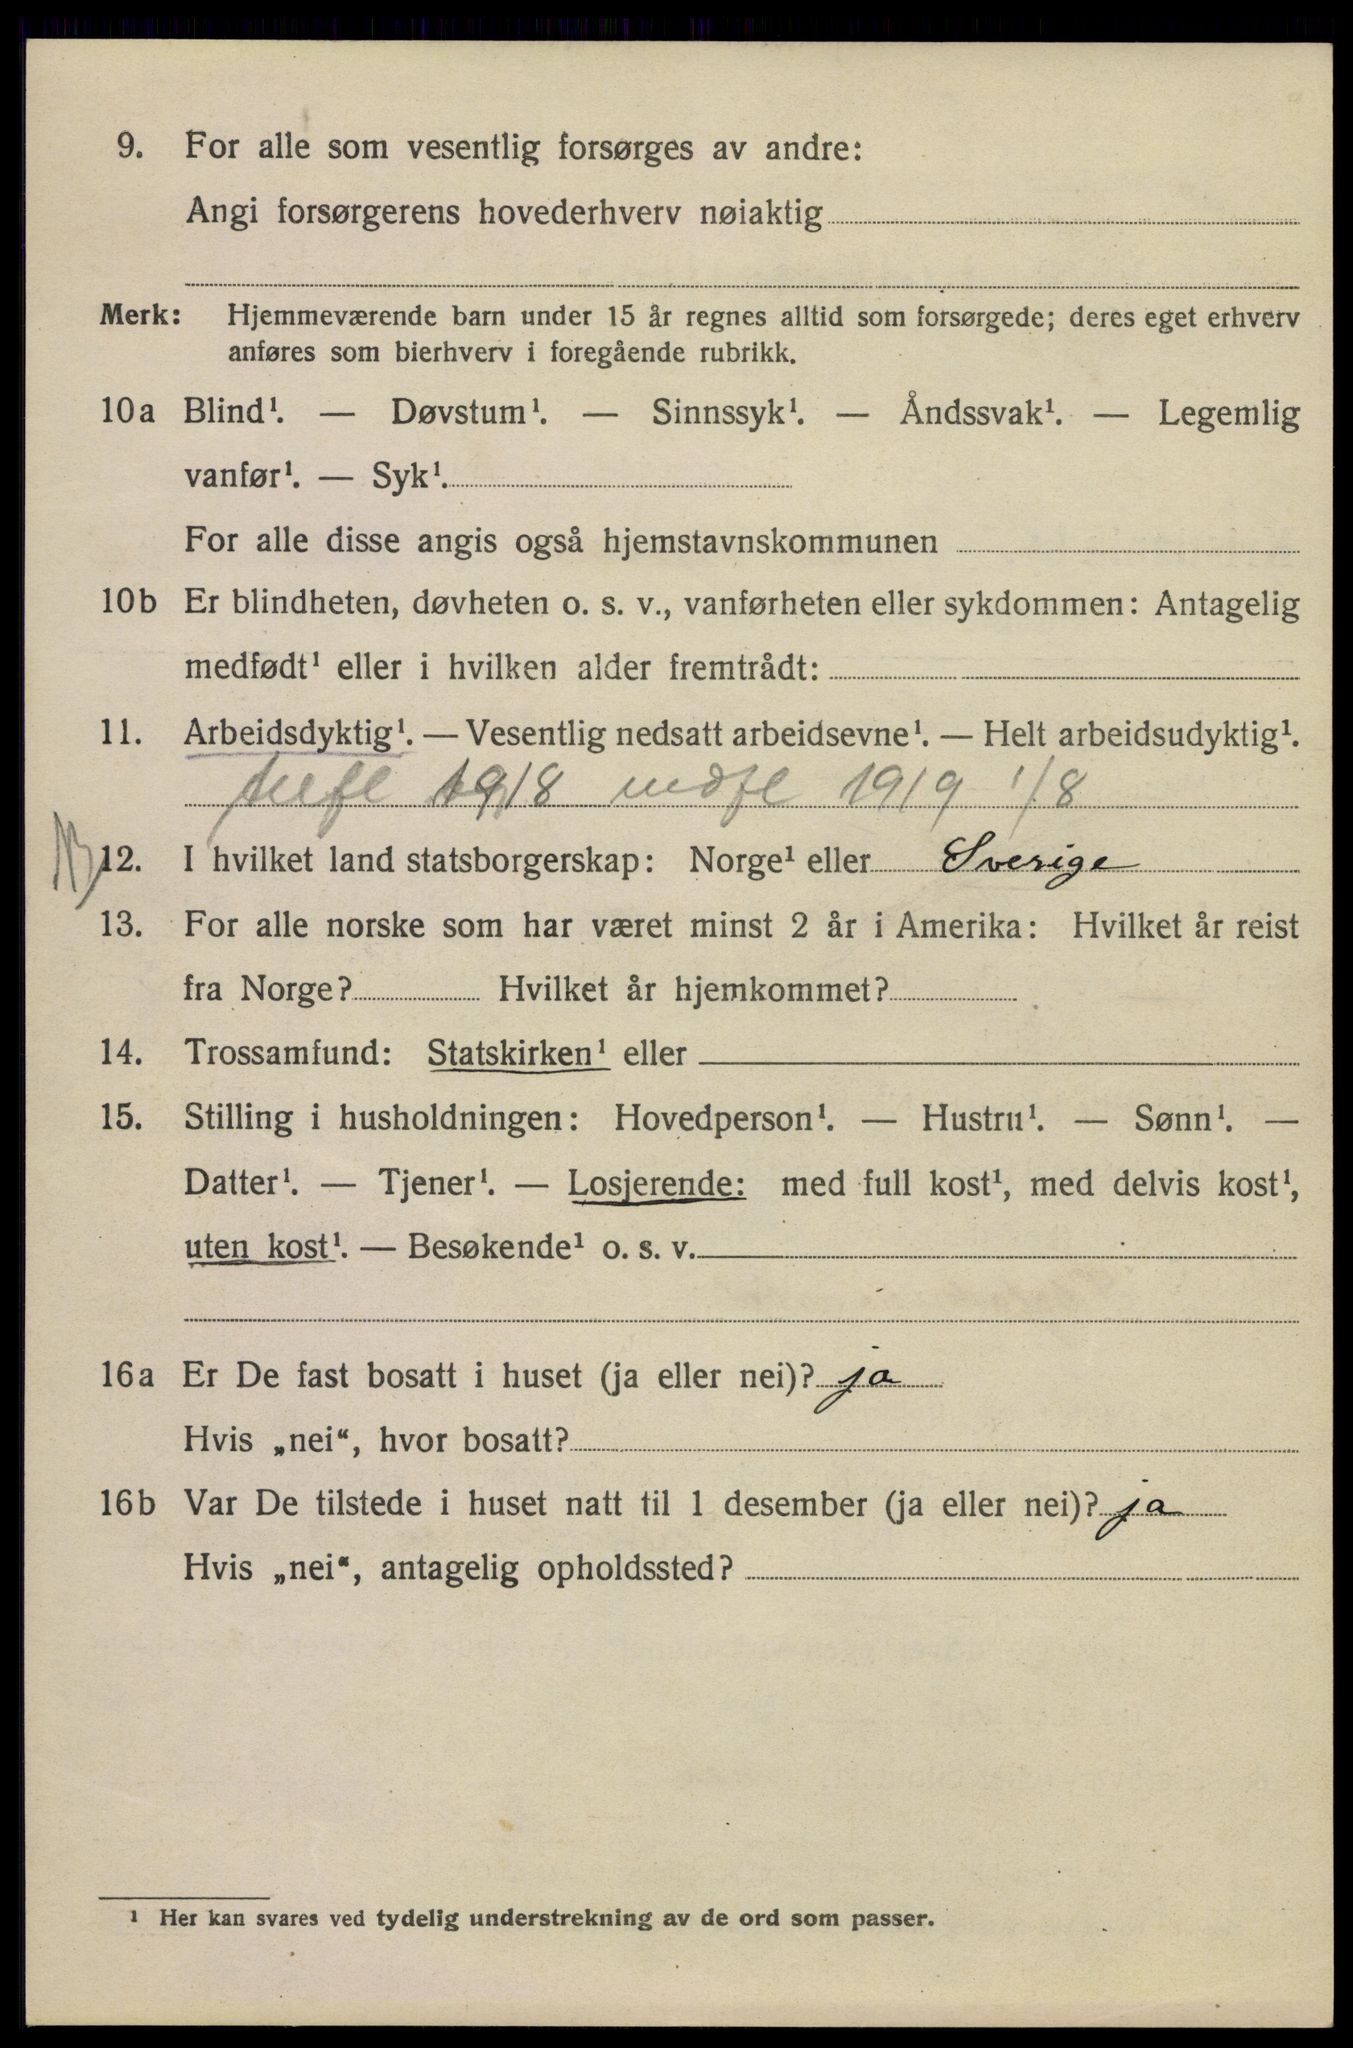 9. For alle som vesentlig forsørges av andre:
Angi forsørgerens hovederhverv nøiaktig
Merk: Hjemmeværende barn under 15 år regnes alltid som forsørgede; deres eget erhverv
anføres som bierhverv i foregående rubrikk.
10a Blind¹. — Døvstum¹. — Sinnssyk¹. — Åndssvak¹. — Legemlig
vanfør¹. — Syk¹.
For alle disse angis også hjemstavnskommunen
10b Er blindheten, døvheten o. s. v., vanførheten eller sykdommen: Antagelig
medfødt¹ eller i hvilken alder fremtrådt:
11. Arbeidsdyktig¹. — Vesentlig nedsatt arbeidsevne¹. — Helt arbeidsudyktig¹.
1918 1919 1/8
12. I hvilket land statsborgerskap: Norge¹ eller Sverige
13. For alle norske som har været minst 2 år i Amerika: Hvilket år reist
fra Norge? Hvilket år hjemkommet?
14. Trossamfund: Statskirken¹ eller
15. Stilling i husholdningen: Hovedperson¹. — Hustru¹. — Sønn¹. —
Datter¹. — Tjener¹. — Losjerende: med full kost¹, med delvis kost¹,
uten kost¹. — Besøkende¹ o. s. v.
16a Er De fast bosatt i huset (ja eller nei)? ja
Hvis „nei“, hvor bosatt?
16b Var De tilstede i huset natt til 1 desember (ja eller nei)? ja
Hvis „nei“, antagelig opholdssted?
¹ Her kan svares ved tydelig understrekning av de ord som passer.